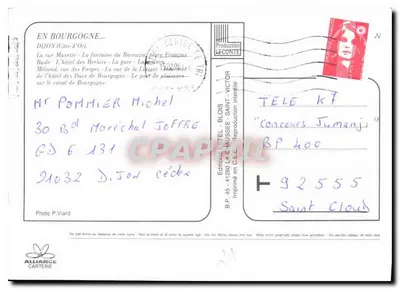 EN BOURGOGNE...
DIJON (Côte d'Or).
La rue Musette - La fontaine du Bareuzai place François
Rude. L'hôtel des Berbis - La gare - La
Milsand, rue des Forges - La rue de la Liberté
de l'hôtel des Ducs de Bourgogne - Le port de plaisance
sur le canal de Bourgogne.
Mr POMMIER Michel
30 Bd Maréchal JOFFRE
GD 6 131
21032 Dijon Cédex
Photo P. Viard
ALLIANCE
CARTERIE
Production
LECONTE
B.P. 45 - 41260 LA CHAUSSÉE-SAINT-VICTOR
Imprimé en C.E.E. - Reproduction interdite
TELE K7
"Concours Jumanji"
BP 400
T 92555
Saint Cloud
CPAPHIL